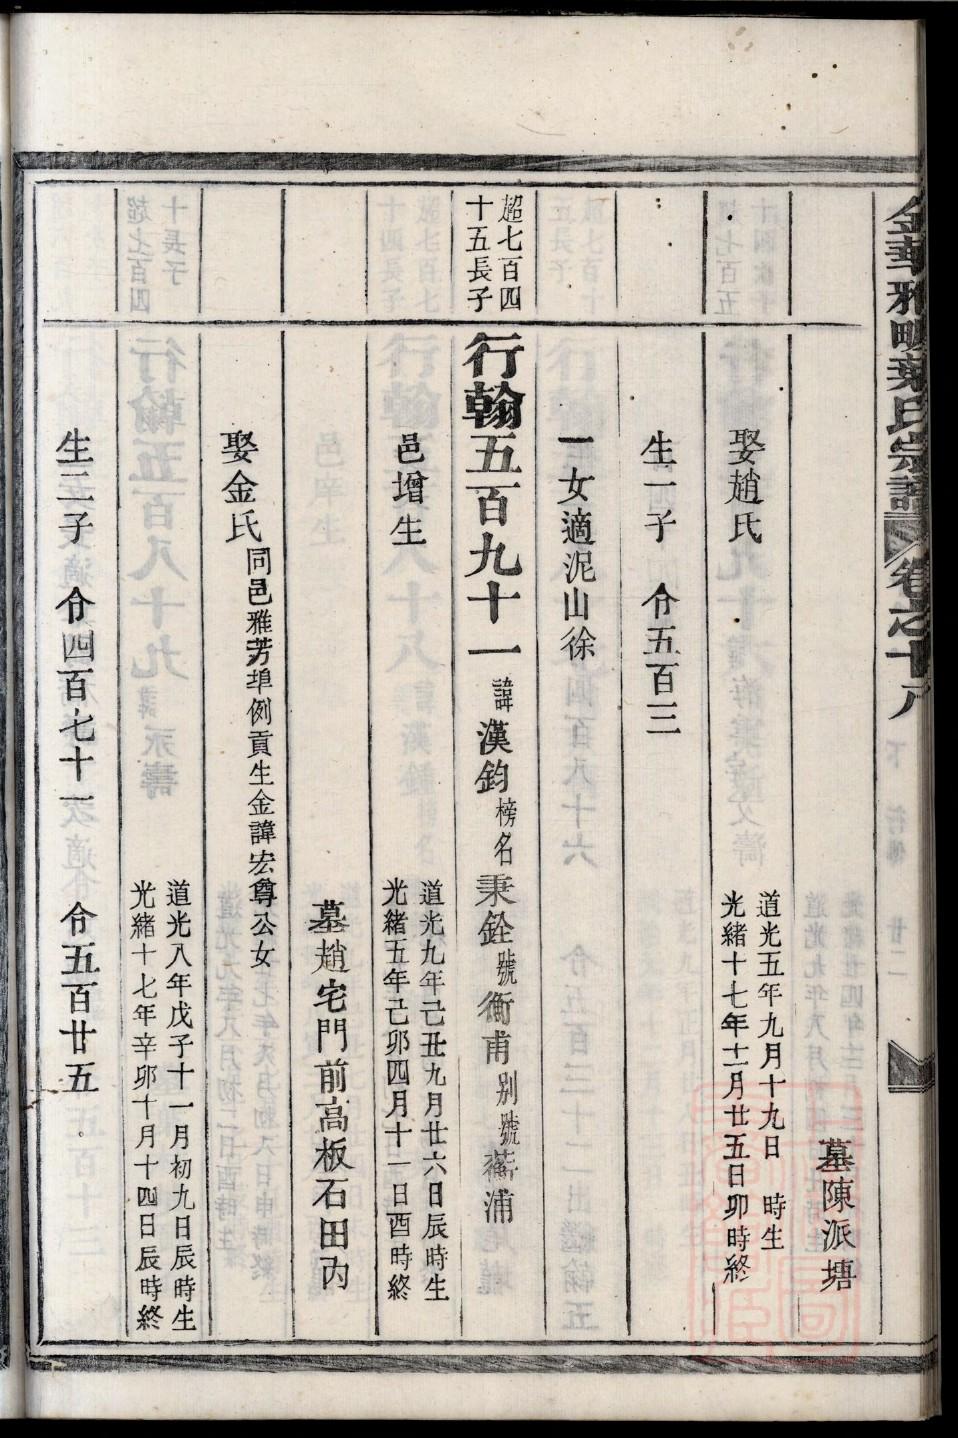 金華雅畈葉氏宗譜 卷之十八
墓陳派塘
娶趙氏
道光五年九月十九日 時生
光緒十七年十一月廿五日卯時終
生一子 令五百三
一女適泥山徐
超七百四
十五長子
行翰五百九十一 諱漢鈞 榜名秉銓 號衡甫 別號 浦
邑增生
道光九年己丑九月廿六日辰時生
光緒五年己卯四月十一日酉時終
墓趙宅門前高板石田內
娶金氏 同邑雅芳埠例貢生金諱宏尊公女
道光八年戊子十一月初九日辰時生
光緒十七年辛卯十月十四日辰時終
生三子 令四百七十一 令五百廿五